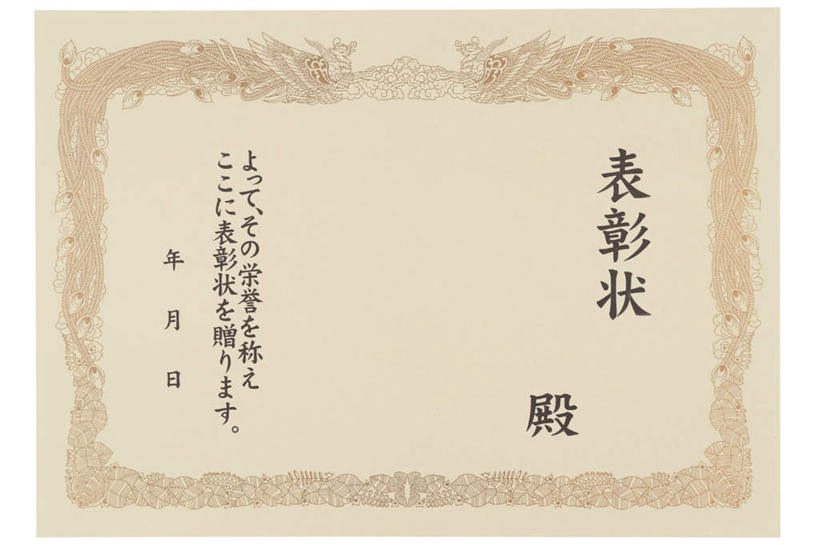 表彰状
殿
よって、その栄誉を称え
ここに表彰状を贈ります。
年 月 日